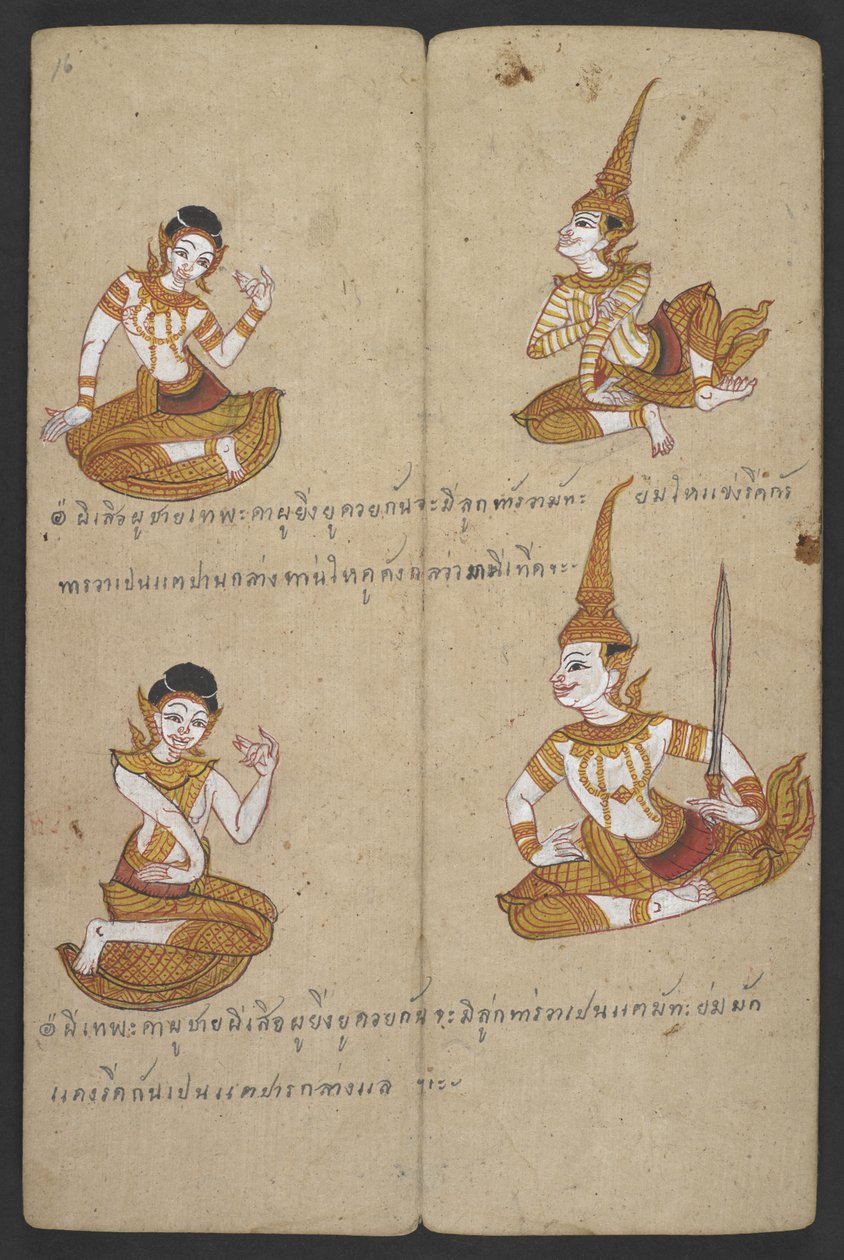 16
๏ ผีเสือผูชายเทพะดาผูยิ่งยูดวยกันจะมีลูกทารวามัทะ ยมใหแขงรีดกัร
ทารวาเปนแตปานกล่าง ทานใหดูดังกลว่ามานี่เทีด ฯะ๛
๏ ผีเทพะดาผูชายผีเสือผูยิ่งยูดวยกันจะมีลู่กทารวาเปนแตมัทะ ย่มมัก
แดงรีดกันเปนแตปารกล่างแล ฯะ๛